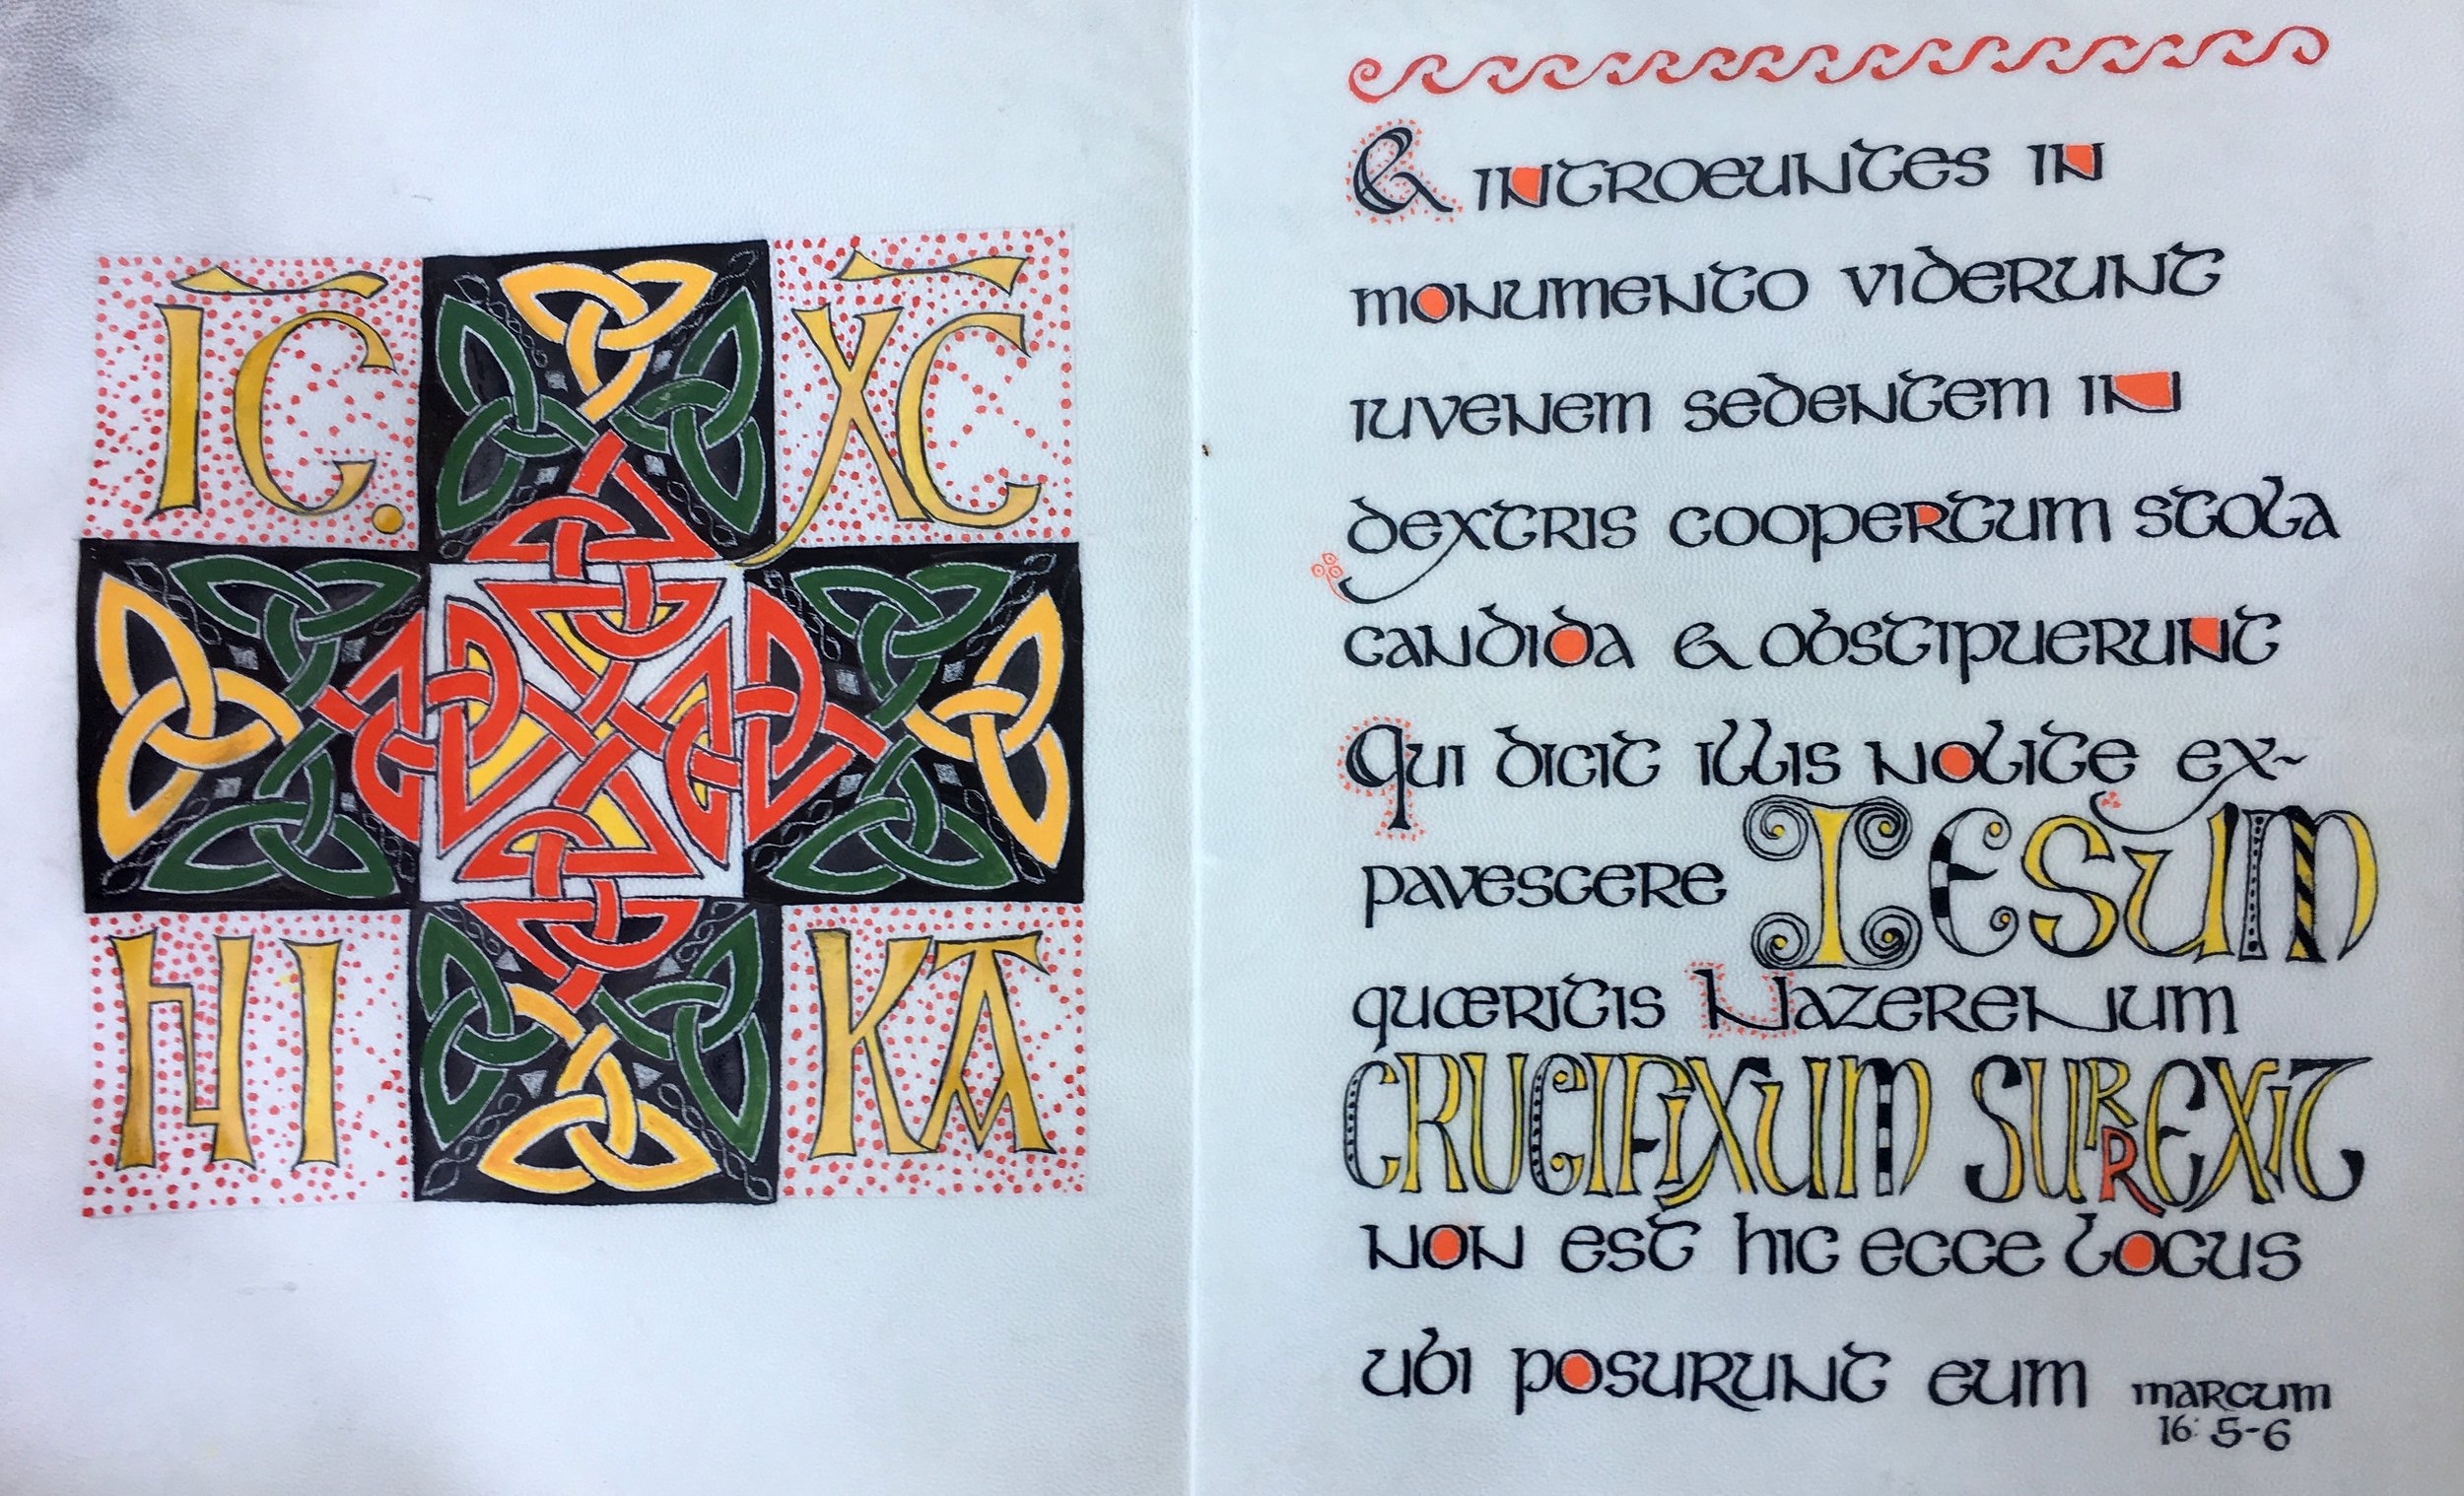 IC. XC
NI KA
& introeuntes in
monumento viderunt
iuvenem sedentem in
dextris coopertum stola
candida & obstipuerunt
Qui dicit illis nolite ex-
pavescere IESUM
quæritis Nazerenum
CRUCIFIXUM SURREXIT
non est hic ecce locus
ubi posurunt eum marcum
16:5-6